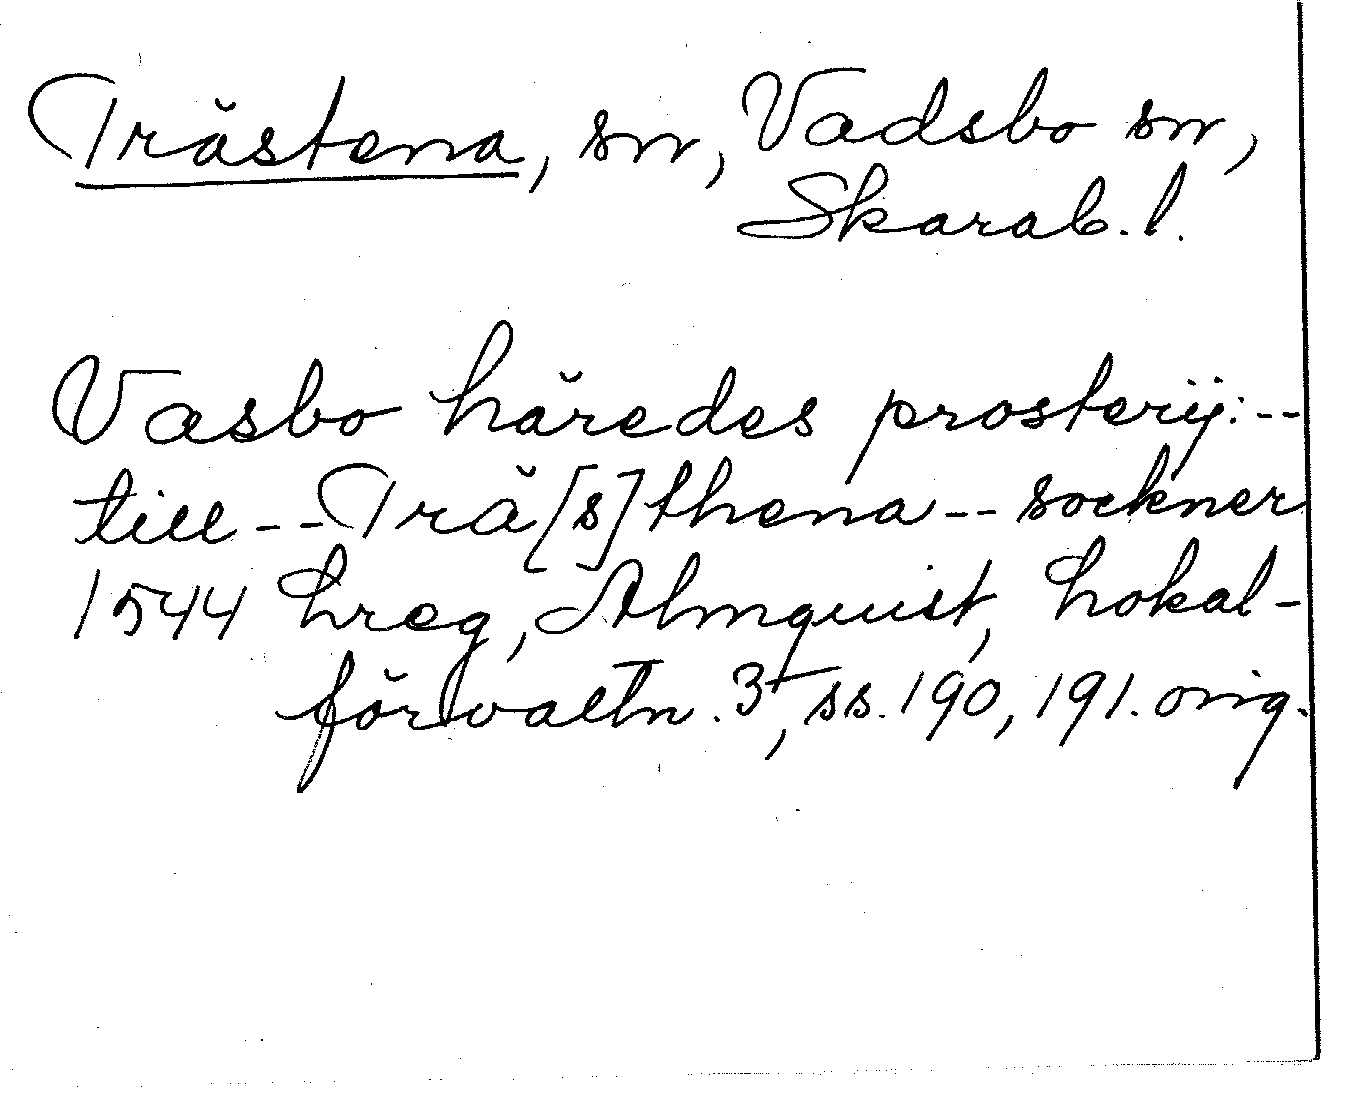 Trästena, sn, Vadsbo sn,
Skarab. l.
Vasbo häredes prosterij: --
till -- Trä[s]thena -- sockner
1544 Lreg, Almquist, Lokal-
förvaltn. 3, ss. 190, 191. orig.